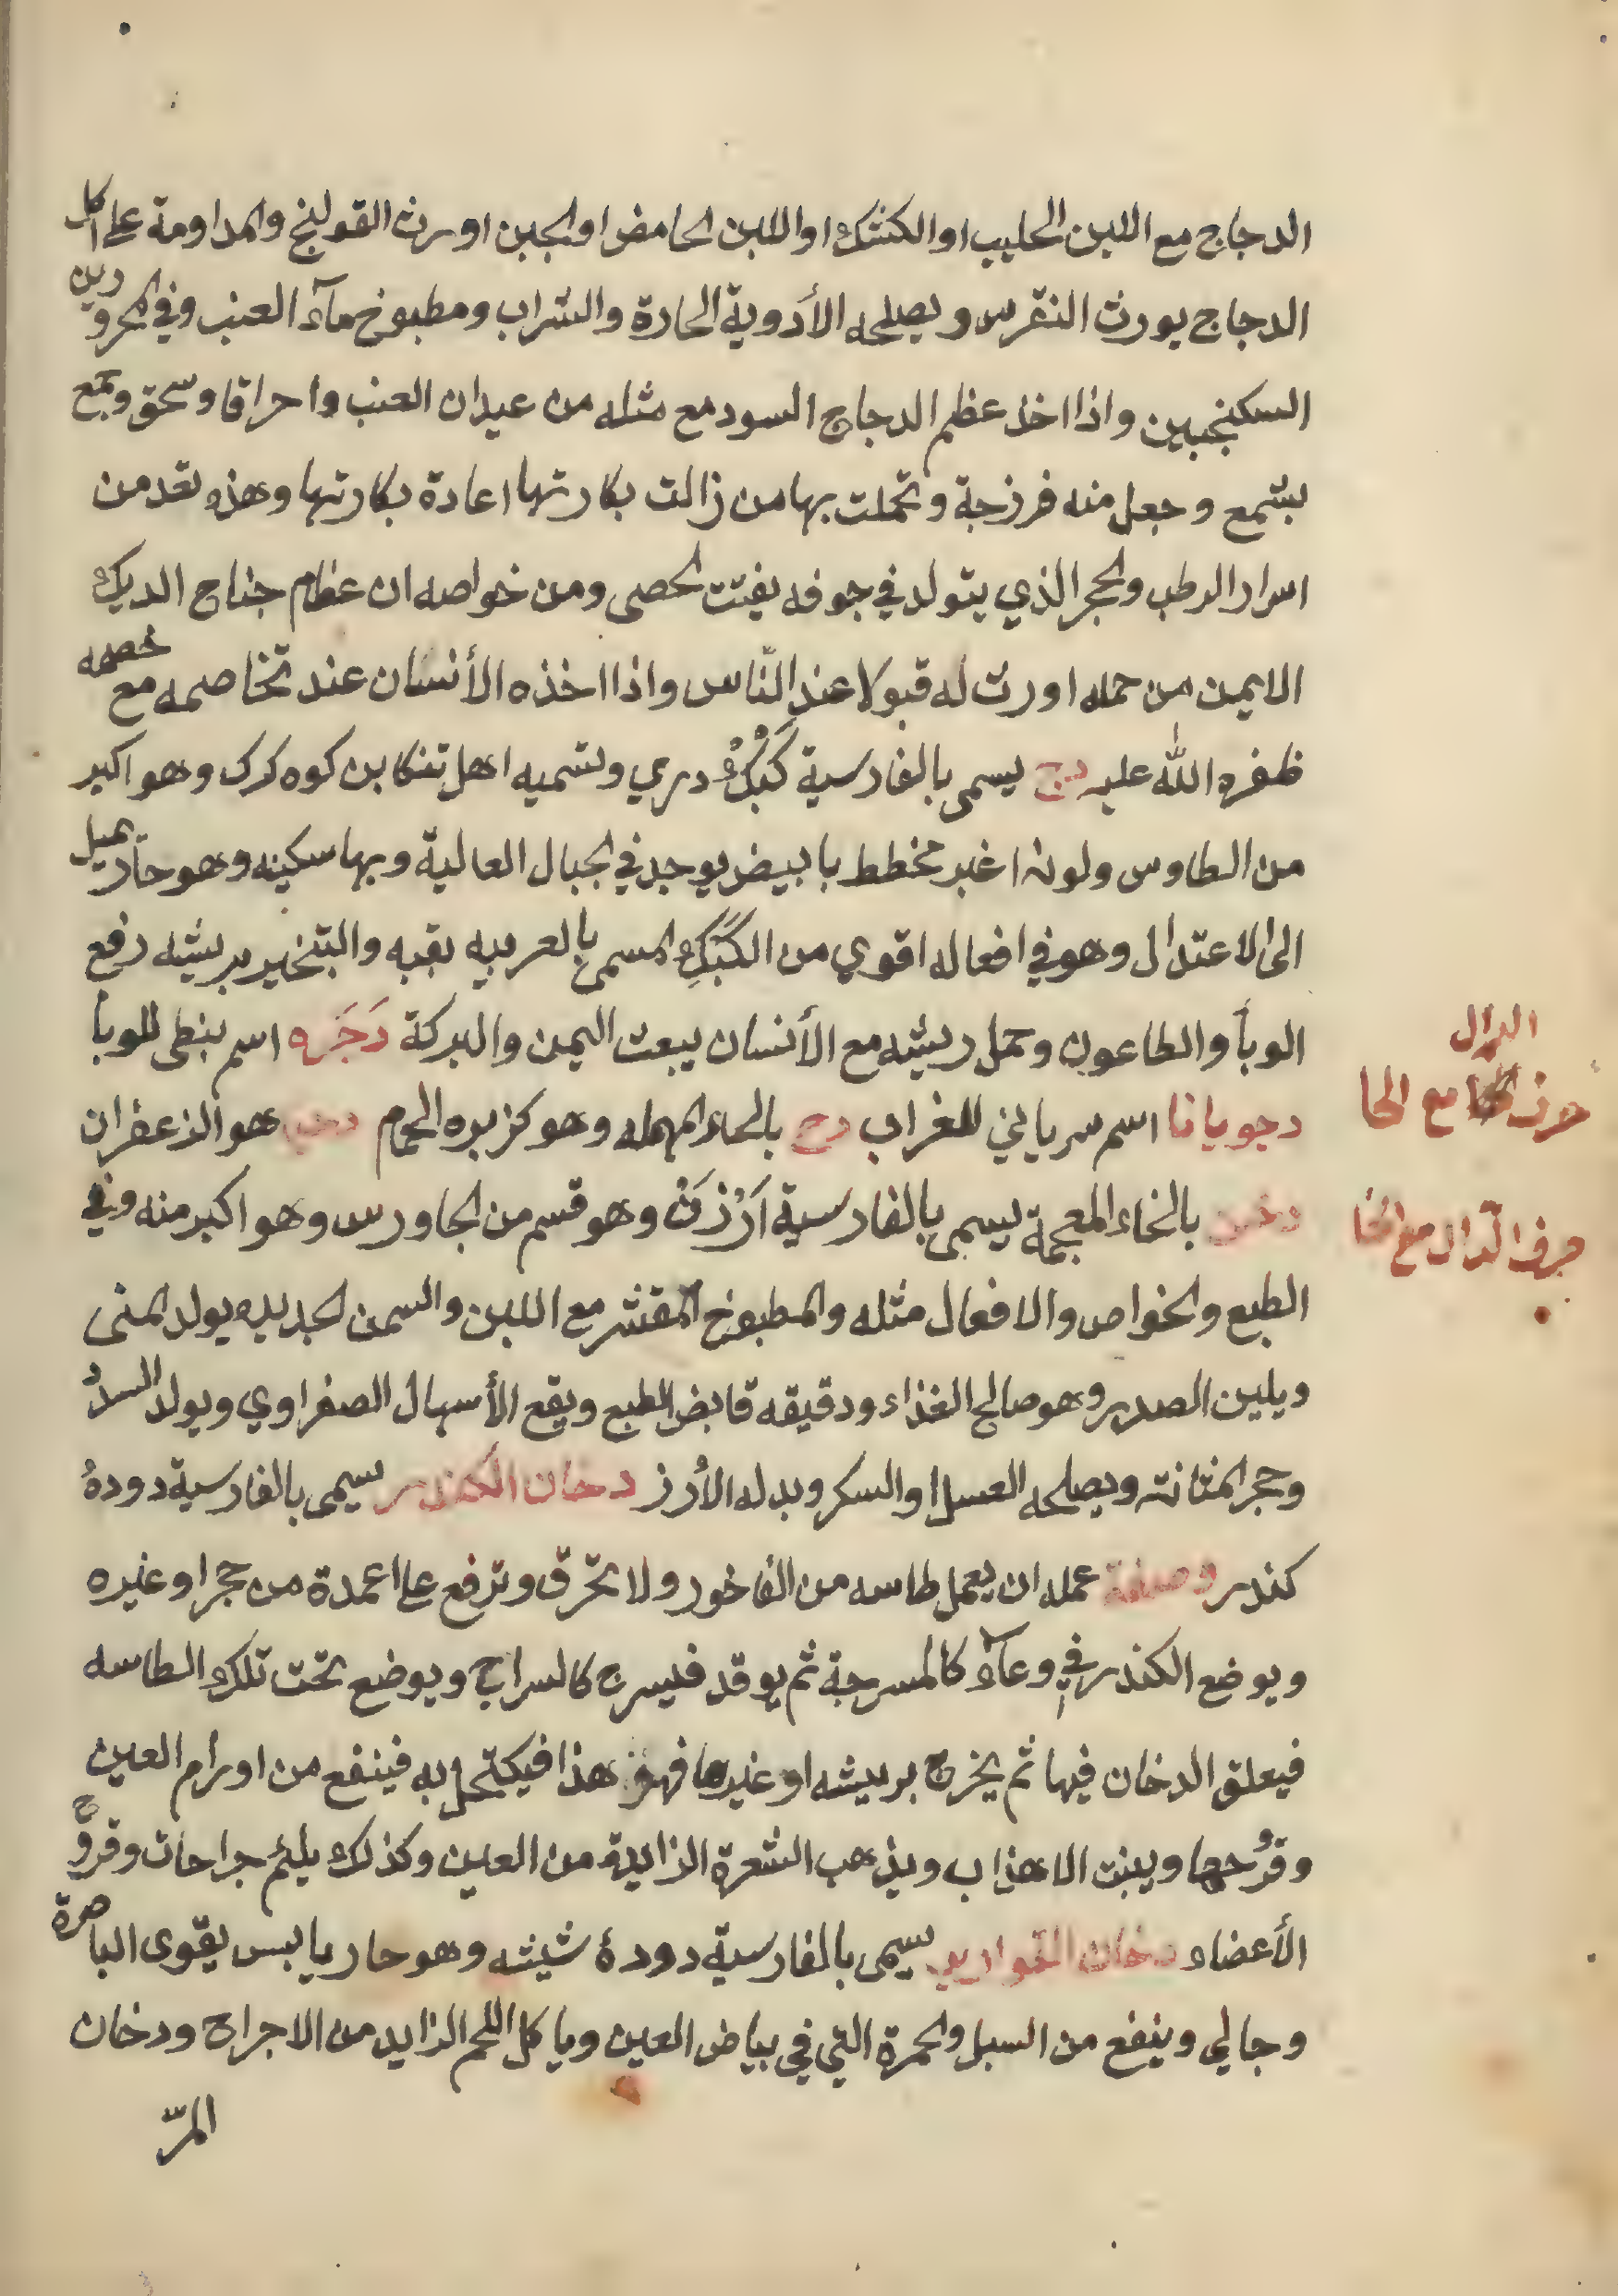 الدجاج مع اللبن الحليب او الكشك او اللبن الحامض او الجبن اورث القولنج والمداومة على اكل
الدجاج يورث النقرس ويصلحه الأدوية الحارة والشراب ومطبوخ مآء العنب وفي المحرورين
السكنجبين واذا اخذ عظم الدجاج السود مع مثله من عيدان العنب واحراقا وسحق وجمع
بشمع وجعل منه فرزجة وتحملت بها من زالت بكارتها اعادة بكارتها وهذه تعد من
اسرار الطب والحجر الذي يتولد في جوفه يفتت الحصى ومن خواصه ان عظام جناح الديك
الايمن من حمله اورث له قبولا عند النّاس واذا اخذه الأنسان عند تخاصمه مع خصمه
ظفره الله عليه دج يسمى بالفارسية كَبْكْ دري وتسميه اهل تنكابن كوه كرك وهو اكبر
من الطاوس ولونه اغبر مخطط بابيض يوجد في الجبال العالية وبها سكينه وهو حآر يميل
الى الاعتدال وهو في افعاله اقوي من الكَبَكِ المسمى بالعربيه بقبه والتبخير بريشه دفع
الوبأ والطاعون وحمل ريشه مع الأنسان يبعث اليمن والبركة دَجَره اسم بنطى للوبأ
دجويانا اسم سرياني للغراب دح بالحاء المهمله وهو كزبره الحمام هو الزعفران
الدال
حرف مع الحا
دخن بالخاء المعجمة يسمى بالفارسية اَرْزَنْ وهو قسم من الجاورس وهو اكبر منه وفي
حرف الدّال مع الخا
الطبع والخواص والافعال مثله والمطبوخ المقشر مع اللبن والسمن الجديده يولد المنى
ويلين الصدر وهو صالح الغذاء ودقيقه قابض الطبع ويقع الأسهال الصفراوي ويولد السدُد
وحجر المثانته ويصلحه العسل او السكر وبدله الأرز دخان الكندر يسمى بالفارسية دودهُ
كندر وصفة عمله ان يعمل طاسه من الفاخور ولا تحرق وترفع على اعمدة من حجر او غيره
ويوضع الكندر في وعآء كالمسرجة ثم يوقد فيسرج كالسراج ويوضع تحت تلك الطاسه
فيعلق الدخان فيها ثم يخرج بريشه او غيرها فهو هذا فيكتحل به فينفع من اورام العين
وقرُحها ويبنت الاهذاب ويذهب الشعرة الزايدة من العين وكذلك يلئم جراحات وقروّح
الأعضاء دخان القوارير يسمى بالفارسية دودهٔ شيشه وهو حار يابس يقوى الباصرة
وجالي وينفع من السبل والحمرة التي في بياض العين وياكل اللحم الزايد من الاجراح ودخان
المرّ